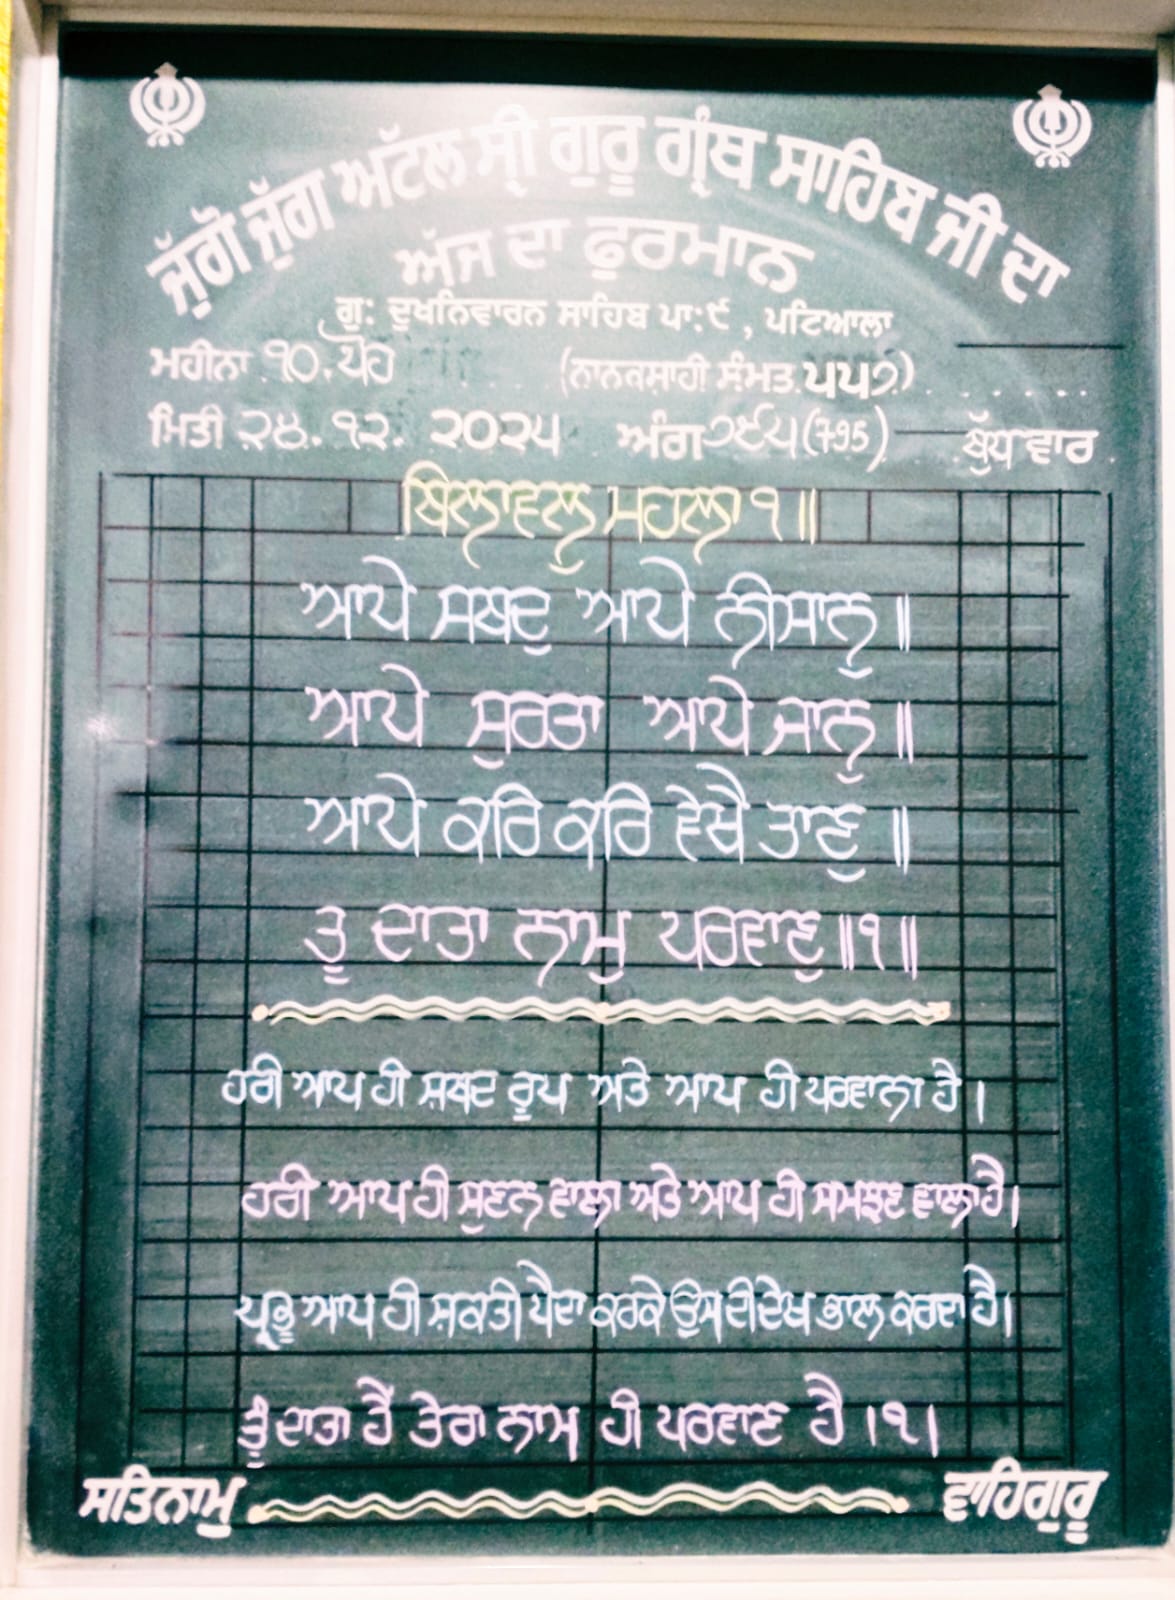 ਜੁੱਗੋ ਜੁੱਗ ਅਟੱਲ ਸ੍ਰੀ ਗੁਰੂ ਗ੍ਰੰਥ ਸਾਹਿਬ ਜੀ ਦਾ
ਅੱਜ ਦਾ ਫੁਰਮਾਨ
ਗੁ: ਦੁਖਨਿਵਾਰਨ ਸਾਹਿਬ ਪਾ:੯, ਪਟਿਆਲਾ
ਮਹੀਨਾ ੧੦. ਪੋਹ (ਨਾਨਕਸ਼ਾਹੀ ਸੰਮਤ ੫੫੭)
ਮਿਤੀ ੨੪. ੧੨. ੨੦੨੫ ਅੰਗ ੭੯੫(795) ਬੁੱਧਵਾਰ
ਬਿਲਾਵਲੁ ਮਹਲਾ ੧॥
ਆਪੇ ਸਬਦੁ ਆਪੇ ਨੀਸਾਨੁ॥
ਆਪੇ ਸੁਰਤਾ ਆਪੇ ਜਾਨੁ॥
ਆਪੇ ਕਰਿ ਕਰਿ ਵੇਖੈ ਤਾਣੁ॥
ਤੂ ਦਾਤਾ ਨਾਮੁ ਪਰਵਾਣੁ॥੧॥
ਹਰੀ ਆਪ ਹੀ ਸ਼ਬਦ ਰੂਪ ਅਤੇ ਆਪ ਹੀ ਪਰਵਾਨਾ ਹੈ।
ਹਰੀ ਆਪ ਹੀ ਸੁਣਨ ਵਾਲਾ ਅਤੇ ਆਪ ਹੀ ਸਮਝਣ ਵਾਲਾ ਹੈ।
ਪ੍ਰਭੂ ਆਪ ਹੀ ਸ਼ਕਤੀ ਪੈਦਾ ਕਰਕੇ ਉਸ ਦੀ ਦੇਖ ਭਾਲ ਕਰਦਾ ਹੈ।
ਤੂੰ ਦਾਤਾ ਹੈਂ ਤੇਰਾ ਨਾਮ ਹੀ ਪਰਵਾਣ ਹੈ।੧।
ਸਤਿਨਾਮੁ ਵਾਹਿਗੁਰੂ